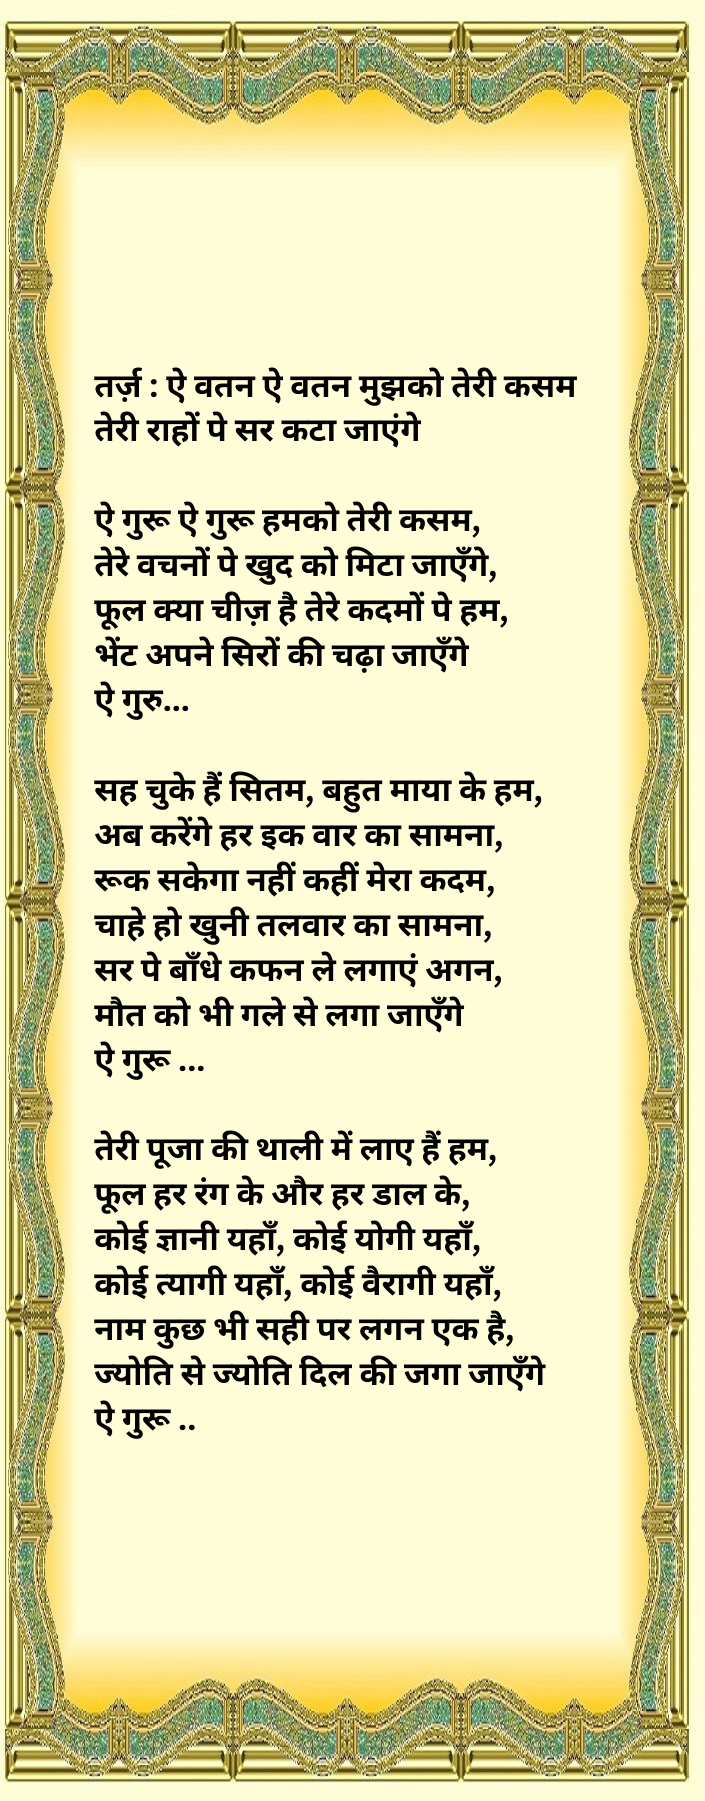 तर्ज़ : ऐ वतन ऐ वतन मुझको तेरी कसम
तेरी राहों पे सर कटा जाएंगे
ऐ गुरू ऐ गुरू हमको तेरी कसम,
तेरे वचनों पे खुद को मिटा जाएँगे,
फूल क्या चीज़ है तेरे कदमों पे हम,
भेंट अपने सिरों की चढ़ा जाएँगे
ऐ गुरु...
सह चुके हैं सितम, बहुत माया के हम,
अब करेंगे हर इक वार का सामना,
रूक सकेगा नहीं कहीं मेरा कदम,
चाहे हो खुनी तलवार का सामना,
सर पे बाँधे कफन ले लगाएं अगन,
मौत को भी गले से लगा जाएँगे
ऐ गुरू ...
तेरी पूजा की थाली में लाए हैं हम,
फूल हर रंग के और हर डाल के,
कोई ज्ञानी यहाँ, कोई योगी यहाँ,
कोई त्यागी यहाँ, कोई वैरागी यहाँ,
नाम कुछ भी सही पर लगन एक है,
ज्योति से ज्योति दिल की जगा जाएँगे
ऐ गुरू ..